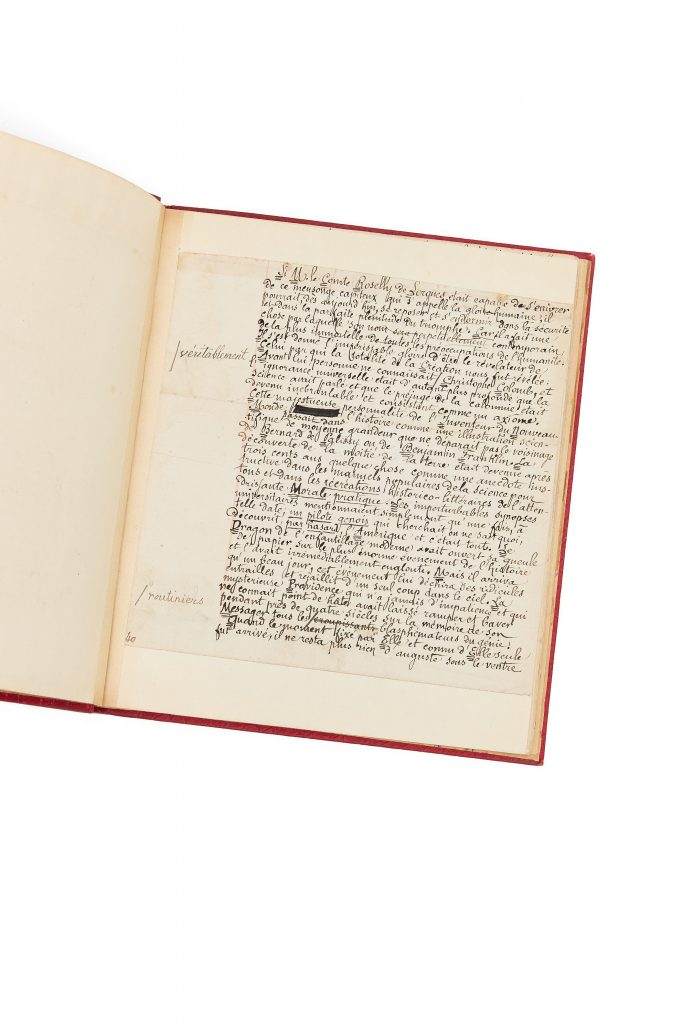 Si M. le Comte Roselly de Lorgues était capable de s'enivrer
de ce mensonge capiteux qu'on appelle la gloire humaine, il
pourrait, dès aujourd'hui, se reposer et s'endormir dans la sécurité
et dans la parfaite plénitude du triomphe. Car il a fait une
chose par laquelle son nom sera perpétuellement contemporain
de la plus immortelle de toutes les préoccupations de l'humanité:
il s'est donné l'impérissable gloire d'être le révélateur de
Celui par qui la totalité de la Création nous fut révélée.
/véritablement
Avant lui personne ne connaissait Christophe Colomb, et
l'ignorance universelle était d'autant plus profonde que la
science avait parlé et que le préjugé de la calomnie était
devenu inébranlable et consistant comme un axiome.
Cette majestueuse personnalité de l'Inventeur du Nouveau-
Monde passait dans l'histoire comme une illustration scien-
tifique de moyenne grandeur que ne déparait pas le voisinage
de Bernard de Palissy ou de Benjamin Franklin. La
découverte de la moitié de la terre était devenue après
trois cents ans quelque chose comme une anecdote ins-
tructive dans les manuels populaires de la science pour
tous et dans les récréations historico-littéraires de l'atten-
drissante Morale pratique. Les imperturbables synopses
universitaires mentionnaient simplement qu'une fois, à
telle date, un pilote génois qui cherchait on ne sait quoi,
découvrit, par hasard, l'Amérique et c'était tout. Le
Dragon de l'enfantillage moderne avait ouvert sa gueule
de papier sur le plus énorme événement de l'histoire
et l'avait irrémédiablement englouti. Mais il arriva
qu'un beau jour, cet événement lui déchira ses ridicules
entrailles et rejaillit d'un seul coup dans le ciel. La
mystérieuse Providence qui n'a jamais d'impatience et qui
ne connait point de hâte, avait laissé ramper et baver
pendant près de quatre siècles sur la mémoire de son
/routiniers
Messager tous les croupissants blasphémateurs du génie;
Quand le moment fixé par Elle et connu d'Elle seule
fut arrivé, il ne resta plus rien d'auguste sous le ventre
40